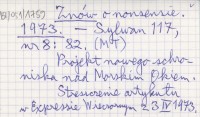 Znów o nonsensie.
1973. — Sylwan 117,
nr 8: 82. (MT)
Projekt nowego schro-
niska nad Morskim Okiem.
Streszczenie artykułu
w Expressie Wieczornym z 3 IV 1973.